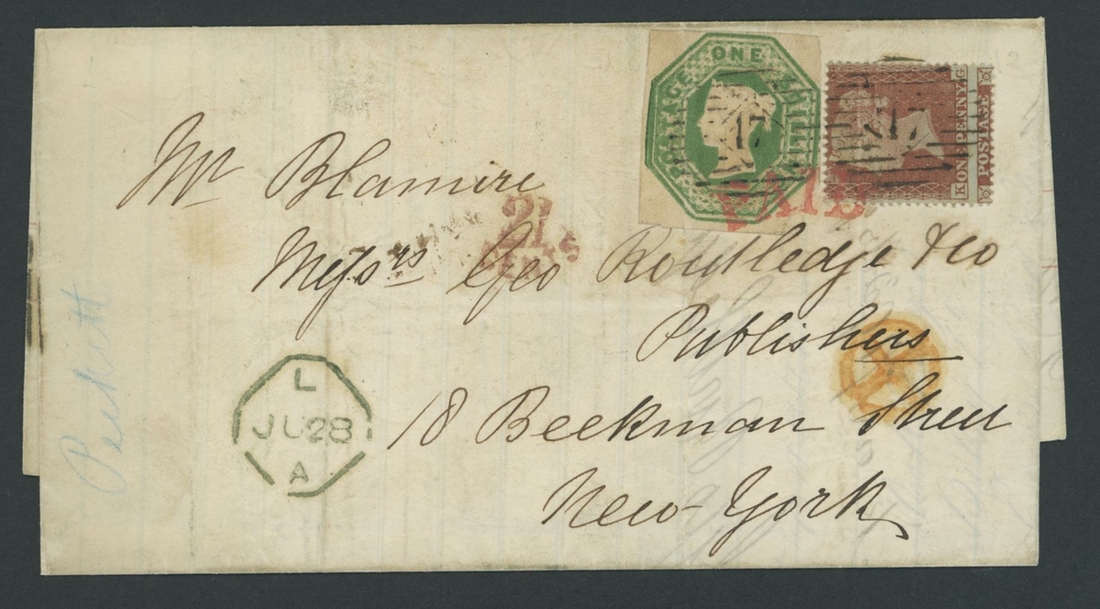 ONE SHILLING
POSTAGE
17
ONE PENNY
POSTAGE
K G
17
PAID
Mr Blamire
21
CENTS
Messrs Geo Routledge & Co
Publishers
18 Beekman Street
New-York
L
JU28
A